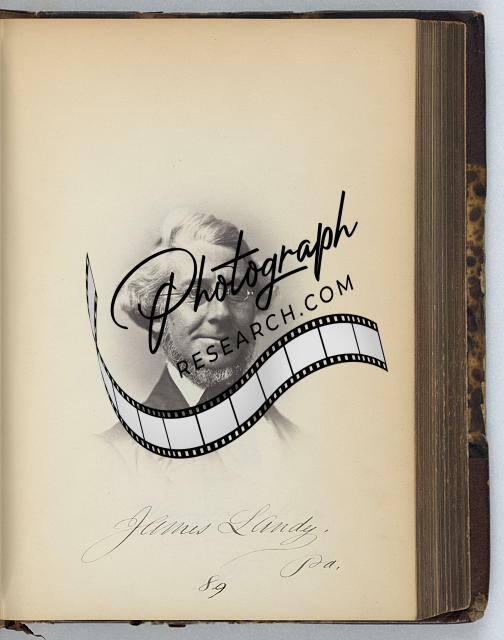 Photograph
RESEARCH.COM
James Landy.
Pa.
89